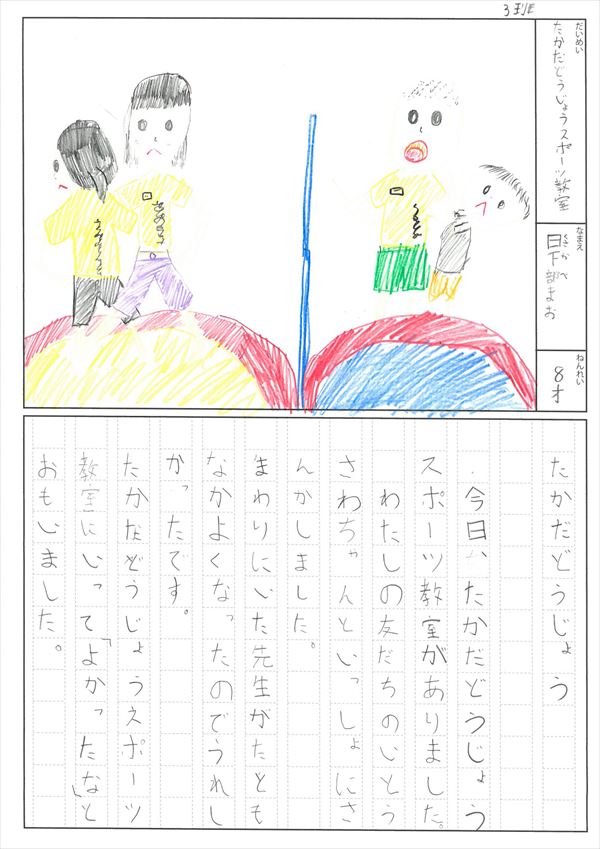 3班
だいめい
たかだどうじょうスポーツ教室
なまえ
くさかべ
日下部まお
ねんれい
8才
たかだどうじょう
今日、たかだどうじょう
スポーツ教室がありました。
わたしの友だちのいとう
さわちゃんといっしょにさ
んかしました。
まわりにいた先生がたとも
なかよくなったのでうれし
かったです。
たかだどうじょうスポーツ
教室にいって「よかったなと」
おもいました。